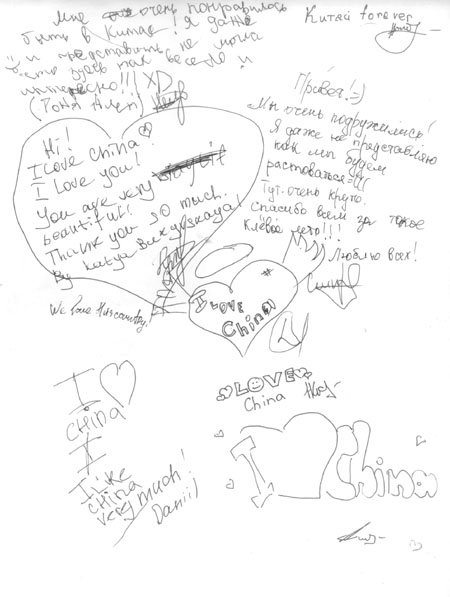 Мне очень понравилось
быть в Китае! Я даже
и представить не могла
что здесь так весело и
интересно!!! XD
Китай forever
Hi!
I Love China.
I Love you!
You are very
beautiful!
Thank you so much.
By Katya
Привет! =)
Мы очень подружились!
Я даже не представляю
как мы будем
расставаться=(((
Тут очень круто.
Спасибо всем за такое
клёвое лето!!!
Люблю всех!
We love this country!
I LOVE
China
I
CHINA
I
I Like
CHINA
very much!
Daniil
LOVE
China
I China